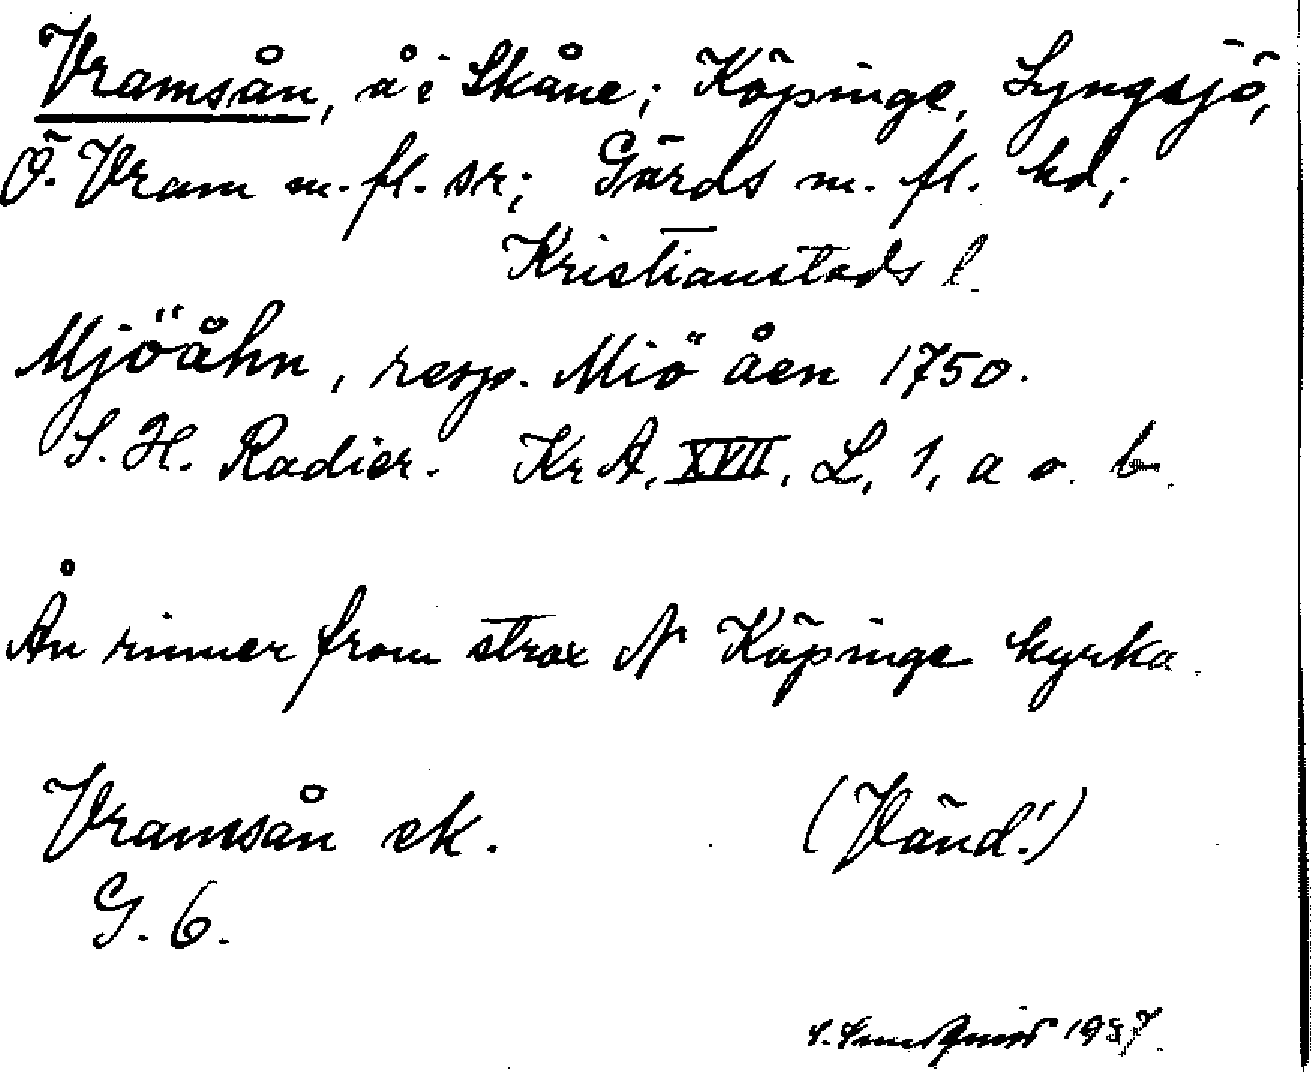 Vramsån, å i Skåne; Köpinge, Lyngsjö,
Ö. Vram m. fl. sr; Gärds m. fl. hd;
Kristianstads l.
Mjöåhn, resp. Miö åen 1750.
S. H. Radier. KrA, XVII, L, 1, a o. b.
Ån rinner fram strax N Köpinge kyrka.
Vramsån ek. (Vänd!)
G. 6.
1937.